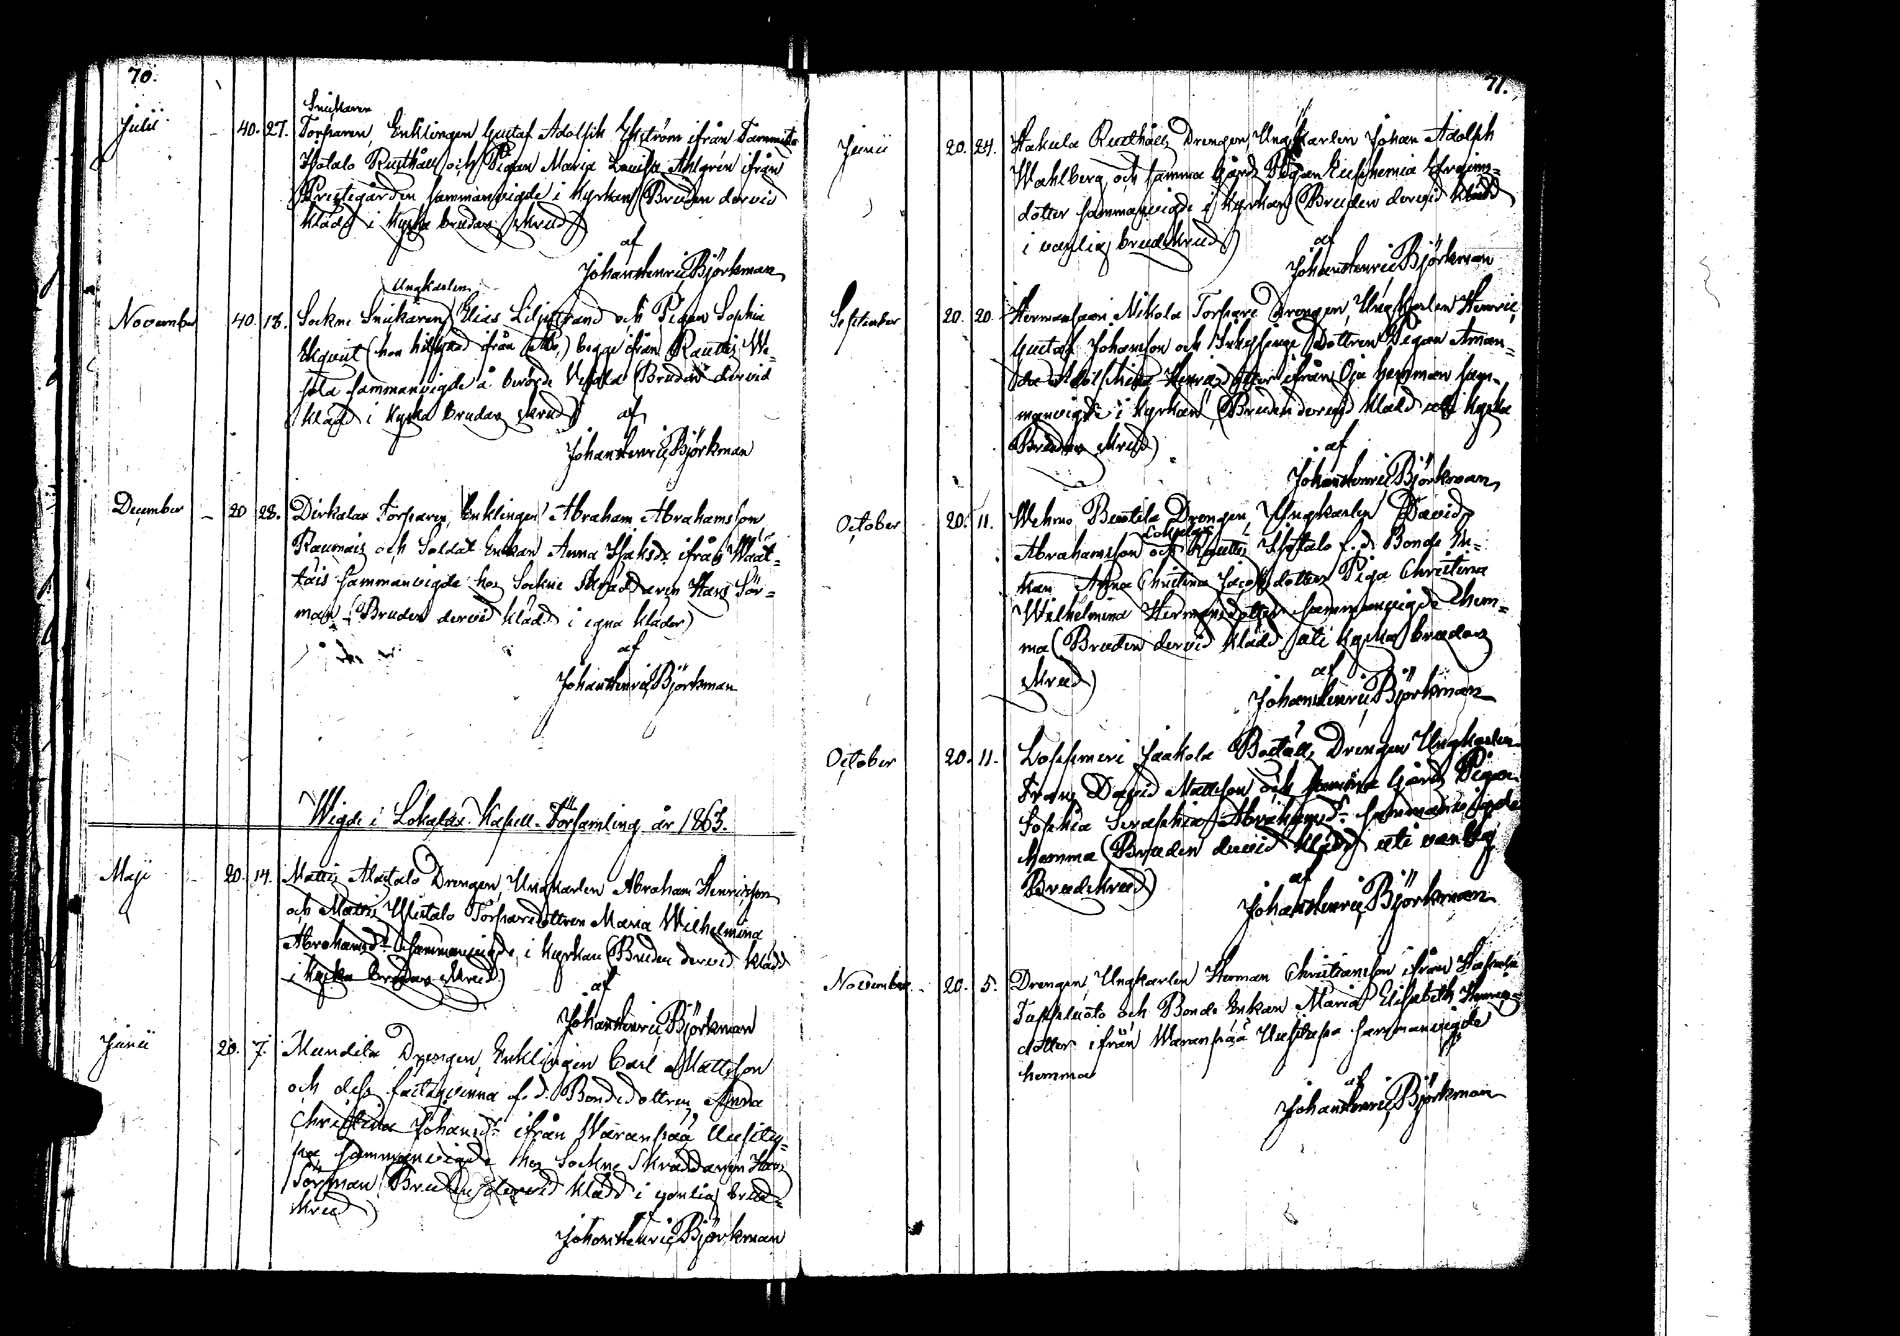 70.
Julii - 40. 27. Snickaren
Torparen, Enklingen Gustaf Adolph ifrån
Rusthåll och Pigan Maria Lovisa Ahlgrén ifrån
Prestegården sammanvigde i Kyrkan (Bruden dervid
klädd i Kyrko brudar skrud)
af
Johan Henric Björkman
Ungkarlen
November 40. 18. Sockne Snickaren Elias Liljestrand och Pigan Sophia
(hon ifrån Åbo,) begge ifrån
sammanvigde å berörde Bruden dervid
klädd i Kyrko brudar skrud) af
Johan Henric Björkman
December - 20 28. Torparen, Enklingen Abraham Abrahamsson
och Soldat Enkan Anna ifrån
sammanvigde hos Sockne Skräddaren
man (Bruden dervid klädd i egna kläder)
af
Johan Henric Björkman
Wigde i Lokalax Kapell-Församling år 1863.
Maji - 20. 14. Mattis Alastalo Drengen, Ungkarlen Abraham Henricsson
och Mattis Torparedottren Maria Wilhelmina
Abrahamsdr sammanvigde i Kyrkan (Bruden dervid klädd
i Kyrko brudar skrud)
af
Johan Henric Björkman
Junii 20. 7. Mundila Drengen, Enklingen Carl Mattsson
och dess fästeqvinna f.d. Bondedottren Anna
Christina Johansdr ifrån Waranpää
sammanvigde hos Sockne Skräddaren
(Bruden dervid klädd i vanlig brud=
skrud)
Johan Henric Björkman
71.
Junii 20. 24. Rusthålls Drengen, Ungkarlen Johan Adolph
Wahlberg och samma Gårds Pigan Euphemia Ephraims=
dotter sammanvigde i Kyrkan (Bruden dervid klädd
i vanlig brudskrud)
af
Johan Henric Björkman
September 20. 20. Torpare Drengen, Ungkarlen Henric
Gustaf Johansson och Dottren Pigan Aman=
da ifrån hemman sam=
manvigde i Kyrkan (Bruden dervid klädd uti Kyrko
Brudar skrud)
af
Johan Henric Björkman
October 20. 11. Wehmo Drengen, Ungkarlen David
Abrahamsson och f.d. Bonde En=
kan Anna Christina Jacobsdotters Piga Christina
Wilhelmina Hermansdotter sammanvigde hem=
ma (Bruden dervid klädd uti Kyrko brudar
skrud)
af
Johan Henric Björkman
October 20. 11. Jaakola Drengen Ungkarlen
Frans David Mattsson och samma Gårds Pigan
Sophia Seraphia Abrahamsdr sammanvigde
hemma (Bruden dervid klädd uti vanlig
Brudskrud)
af
Johan Henric Björkman
November - 20. 5. Drengen, Ungkarlen Herman Christiansson ifrån
och Bonde Enkan Maria Elisabeth Henrics=
dotter ifrån Waranpää sammanvigde
hemma
af
Johan Henric Björkman